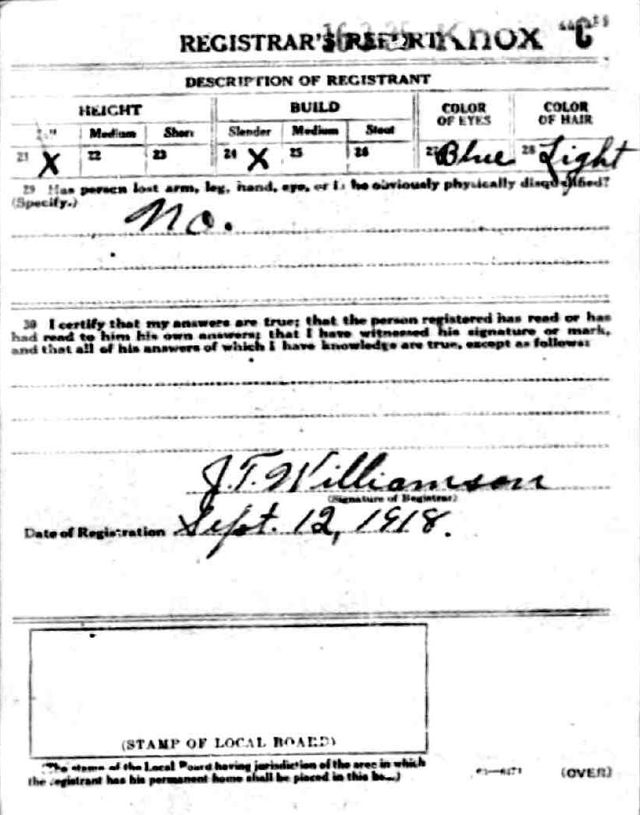 REGISTRAR'S REPORT Knox "C"
DESCRIPTION OF REGISTRANT
HEIGHT BUILD COLOR OF EYES COLOR OF HAIR
Medium Short Slender Medium Stout
21 X 22 23 24 X 25 26 27 Blue 28 Light
29 Has person lost arm, leg, hand, eye, or is he obviously physically disqualified?
(Specify.) No.
30 I certify that my answers are true; that the person registered has read or has
had read to him his own answers; that I have witnessed his signature or mark,
and that all of his answers of which I have knowledge are true, except as follows:
J.T. Williamson
(Signature of Registrar)
Date of Registration Sept. 12, 1918.
(STAMP OF LOCAL BOARD)
(The stamp of the Local Board having jurisdiction of the area in which
the registrant has his permanent home shall be placed in this box.)
(OVER)